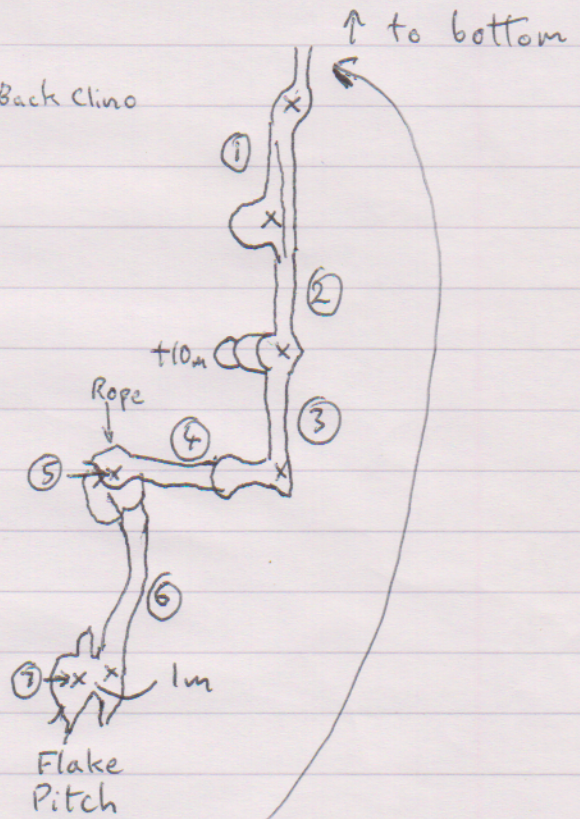 ↑ to bottom
Back Clino
①
②
+10m
Rope
③
④
⑤
⑥
⑦
1m
Flake
Pitch